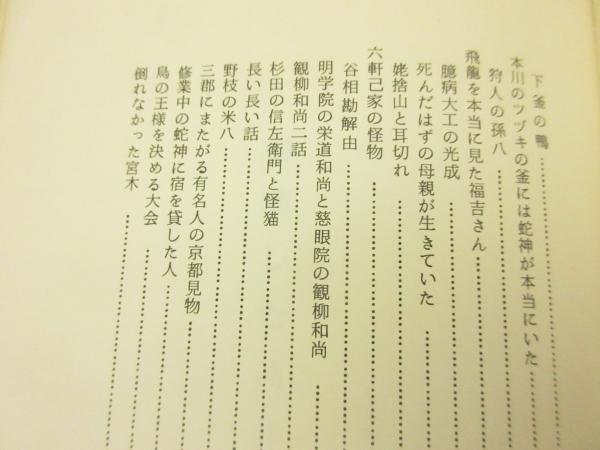 下釜の鴨
本川のツヅキの釜には蛇神が本当にいた
狩人の孫八
飛龍を本当に見た福吉さん
臆病大工の光成
死んだはずの母親が生きていた
姥捨山と耳切れ
六軒己家の怪物
谷相勘解由
明学院の栄道和尚と慈眼院の観柳和尚
観柳和尚二話
杉田の信左衛門と怪猫
長い長い話
野枝の米八
三郡にまたがる有名人の京都見物
修業中の蛇神に宿を貸した人
鳥の王様を決める大会
倒れなかった宮木